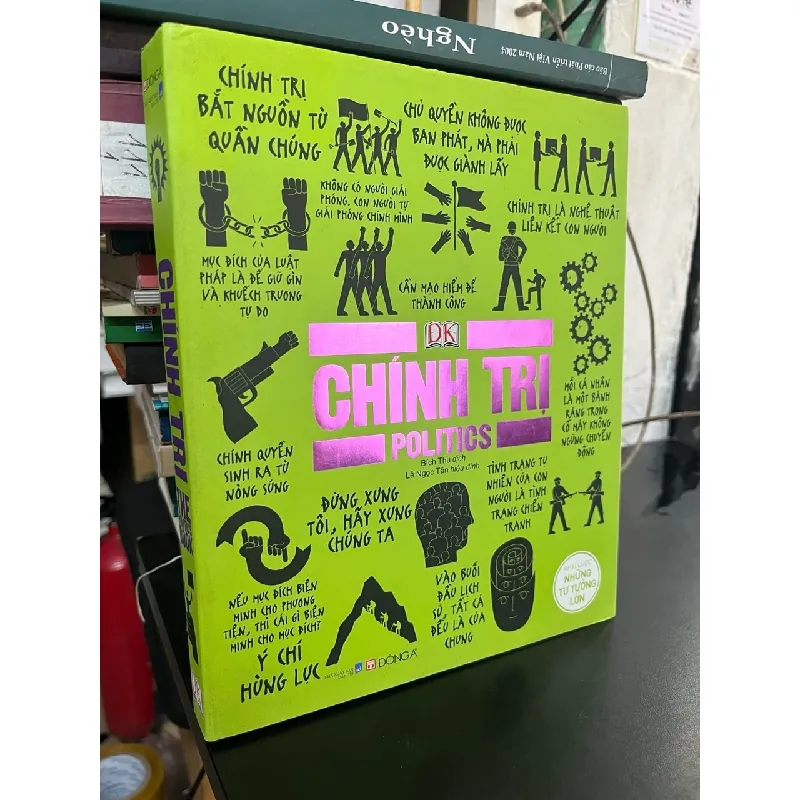 Báo cáo Phát triển Việt Nam 2004
Nghèo
CHÍNH TRỊ
BẮT NGUỒN TỪ
QUẦN CHÚNG
CHỦ QUYỀN KHÔNG ĐƯỢC
BAN PHÁT, MÀ PHẢI
ĐƯỢC GIÀNH LẤY
KHÔNG CÓ NGƯỜI GIẢI
PHÓNG. CON NGƯỜI TỰ
GIẢI PHÓNG CHÍNH MÌNH
CHÍNH TRỊ LÀ NGHỆ THUẬT
LIÊN KẾT CON NGƯỜI
MỤC ĐÍCH CỦA LUẬT
PHÁP LÀ ĐỂ GIỮ GÌN
VÀ KHUẾCH TRƯƠNG
TỰ DO
CẦN MẠO HIỂM ĐỂ
THÀNH CÔNG
DK
CHÍNH TRỊ
POLITICS
Bích Thu dịch
Lê Ngọc Tân hiệu đính
MỖI CÁ NHÂN
LÀ MỘT BÁNH
RĂNG TRONG
CỖ MÁY KHÔNG
NGỪNG CHUYỂN
ĐỘNG
CHÍNH QUYỀN
SINH RA TỪ
NÒNG SÚNG
ĐỪNG XƯNG
TÔI, HÃY XƯNG
CHÚNG TA
TÌNH TRẠNG TỰ
NHIÊN CỦA CON
NGƯỜI LÀ TÌNH
TRẠNG CHIẾN
TRANH
NẾU MỤC ĐÍCH BIỆN
MINH CHO PHƯƠNG
TIỆN, THÌ CÁI GÌ BIỆN
MINH CHO MỤC ĐÍCH?
Ý CHÍ
HÙNG LỰC
VÀO BUỔI
ĐẦU LỊCH
SỬ, TẤT CẢ
ĐỀU LÀ CỦA
CHUNG
NHỮNG
TƯ TƯỞNG
LỚN
ĐÔNG A
CHÍNH TRỊ
DK